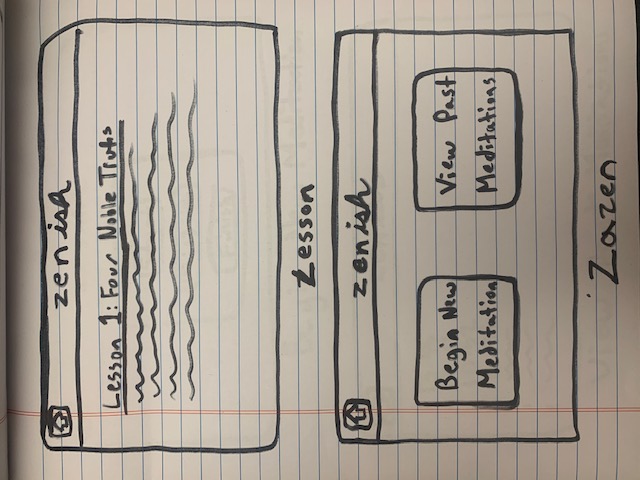 zenish
Lesson 1: Four Noble Truths
Lesson
zenish
Begin New
Meditation
View Past
Meditations
Zazen